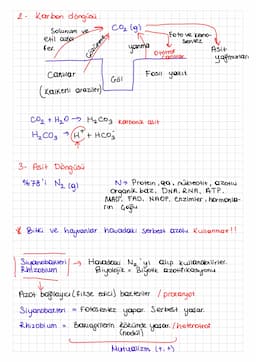 2- Karbon döngüsü
Solunum ve
etil alko
fer.
CO₂ (g)
Foto ve kemo-
sentez
Çözünme
yanma
Ototrof
canlılar
Asit
yağmurları
Canlılar
(kalkerli araziler)
Göl
Fosil yakıt
CO₂ + H₂O → H₂CO₃ karbonik asit
H₂CO₃ → H⁺ + HCO₃⁻
3- Azot Döngüsü
%78'i N₂ (g)
N → Protein, aa, nükleotit, azotlu
organik baz, DNA, RNA, ATP,
NAD, FAD, NADP, Enzimler, hormonla-
rın çoğu
Bitki ve hayvanlar havadaki serbest azotu kullanmaz!!
Siyanobakteri
Rhizobium
→ Havadaki N₂'yi alıp kullanabilirler.
Biyolojik - Biyotik azotifikasyonu
Azot bağlayıcı (fikse edici) bakteriler / prokaryot
Siyanobakteri = Fotosentez yapar. Serbest yaşar.
Rhizobium = Baklagillerin kökünde yaşar / heterotrof
(nodül)
Mutualizm (+,+)